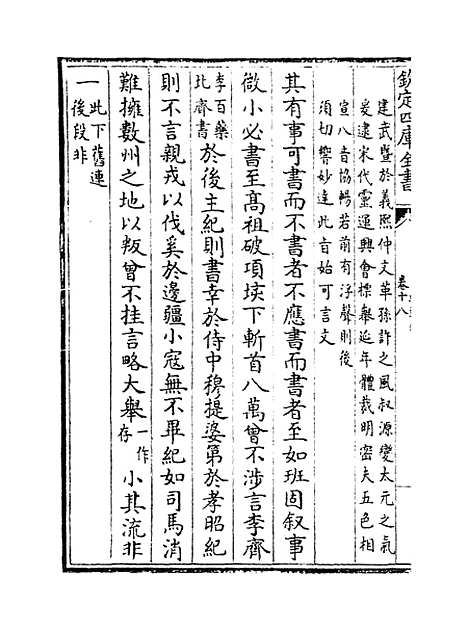 欽定四庫全書
卷十八
建武暨於義熙仲文革孫許之風叔源變太元之氣
爰逮宋代靈運興會標舉延年體裁明密夫五色相
宣八音協暢若前有浮聲則後
須切響妙達此旨始可言文
其有事可書而不書者不應書而書者至如班固叙事
微小必書至高祖破項垓下斬首八萬曾不涉言李齊
李百藥
北齊書
於後主紀則書幸於侍中穆提婆第於孝昭紀
則不言親戎以伐奚於邊疆小寇無不畢紀如司馬消
難擁數州之地以叛曾不挂言略大舉
一作
存
小其流非
一
此下舊連
後段非